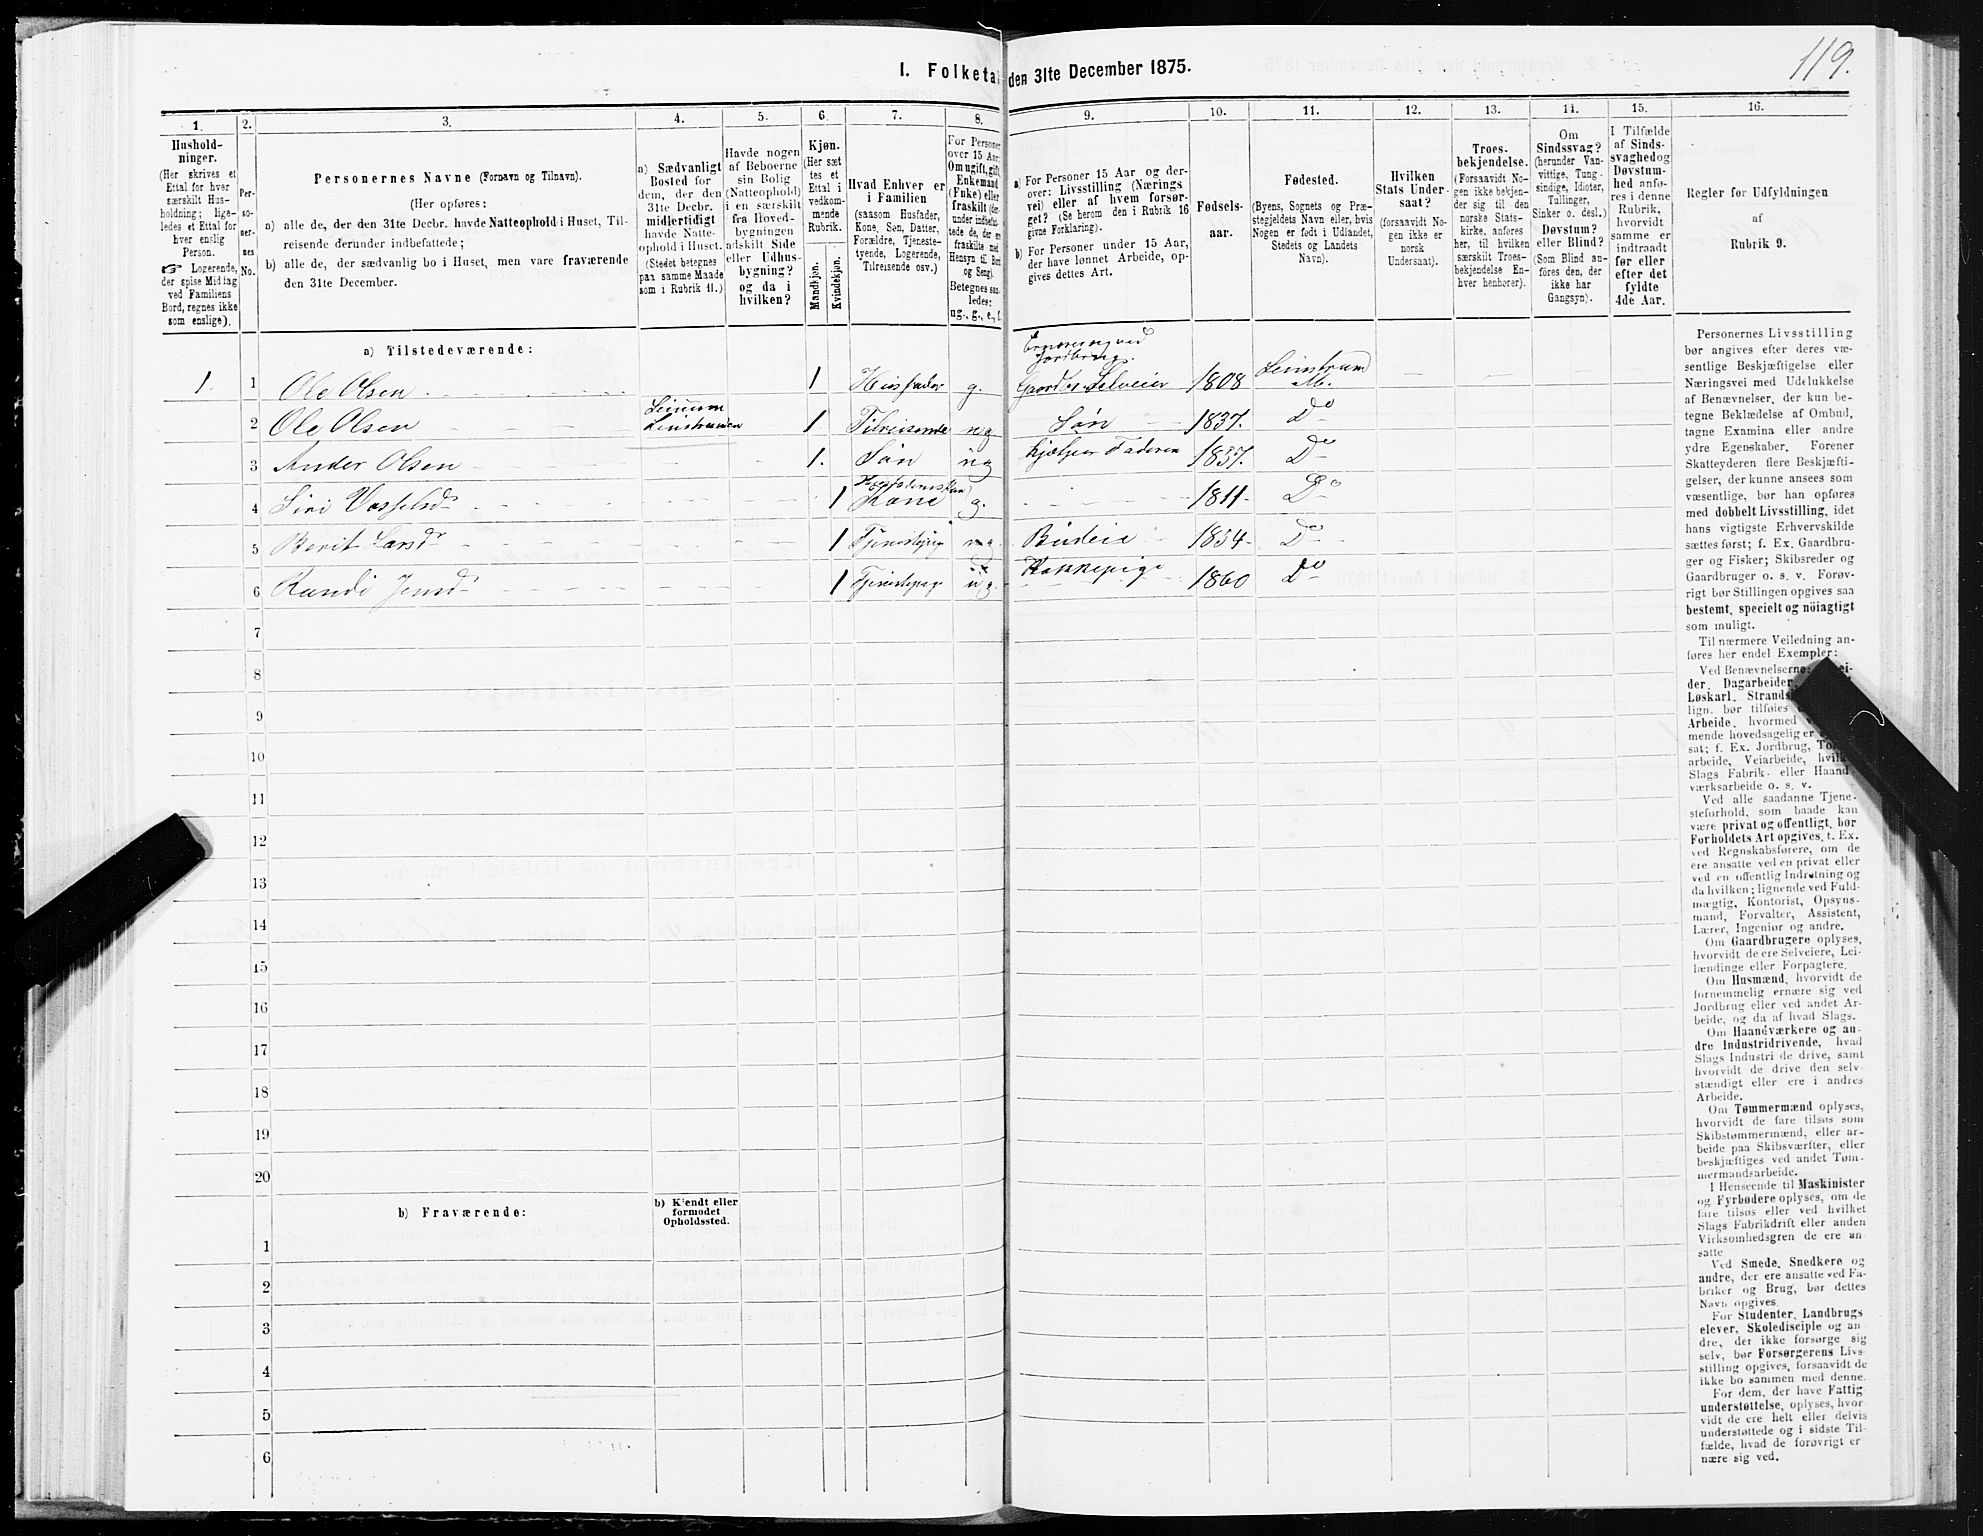 119.
I. Folketæ
den 31te December 1875.
1.
2.
3.
4.
5.
6.
7.
8.
9.
10.
11.
12.
13.
14.
15.
16.
Hushold-
ninger.
(Her skrives et
Ettal for hver
særskilt Hus-
holdning; lige-
ledes et Ettal for
hver enslig
Person.
☞ Logerende,
der spise Middag
ved Familiens
Bord, regnes ikke
som enslige).
Per-
so-
ner-
nes
No.
Personernes Navne (Fornavn og Tilnavn).
(Her opføres:
a) alle de, der den 31te Decbr. havde Natteophold i Huset, Til-
reisende derunder indbefattede;
b) alle de, der sædvanlig bo i Huset, men vare fraværende
den 31te December.
a) Sædvanligt
Bosted for
dem, der den
31te Decbr.
midlertidigt
havde Natte-
ophold i Huset.
(Stedet betegnes
paa samme Maade
som i Rubrik 11.)
Havde nogen
af Beboerne
sin Bolig
(Natteophold)
i en særskilt
fra Hoved-
bygningen
adskilt Side
eller Udhus-
bygning?
og da i
hvilken?
Kjøn.
(Her sæt
tes et
Ettal i
vedkom-
mende
Rubrik.
Mandkjøn.
Kvindekjøn.
Hvad Enhver er
i Familien
(saasom Husfader,
Kone, Søn, Datter,
Forældre, Tjeneste-
tyende, Logerende,
Tilreisende osv.)
For Personer
over 15 Aar:
Om ugift, gift,
Enkemand
(Enke) eller
fraskilt (der-
under indbefat-
tede de, der ere
fraskilte med
Hensyn til Bord
og Seng).
Betegnes saa-
ledes:
ug., g., e., f.
a) For Personer 15 Aar og der-
over: Livsstilling (Nærings
vei) eller af hvem forsør-
get? (Se herom den i Rubrik 16
givne Forklaring).
b) For Personer under 15 Aar,
der have lønnet Arbeide, op-
gives dettes Art.
Fødsels-
aar.
Fødested.
(Byens, Sognets og Præ-
stegjeldets Navn eller, hvis
Nogen er født i Udlandet,
Stedets og Landets
Navn).
Hvilken
Stats Under-
saat?
(forsaavidt No-
gen ikke er
norsk
Undersaat).
Troes-
bekjendelse.
(Forsaavidt No-
gen ikke bekjen-
der sig til den
norske Stats-
kirke, anføres
her, til hvilken
særskilt Troes-
bekjendelse En-
hver henhører).
Om
Sindssvag?
(herunder Van-
vittige, Tung-
sindige, Idioter,
Tullinger,
Sinker o. desl.)
Døvstum?
eller Blind?
(Som Blind an-
føres den, der
ikke har
Gangsyn).
I Tilfælde
af Sinds-
svaghed og
Døvstum-
hed anfø-
res i denne
Rubrik,
hvorvidt
samme er
indtraadt
før eller
efter det
fyldte
4de Aar.
Regler for Udfyldningen
af
Rubrik 9.
a) Tilstedeværende:
Ernærer sig ved
Jordbrug.
1. 1 Ole Olsen 1 Husfader g. Gaardbr. Selveier 1808 Leinstrand
2 Ole Olsen 1 Tilreisende ug Søn 1837. Do
3 Ander Olsen 1. Søn ug Hjælper Faderen 1837. Do
4 Siri 1 Kone g. 1811 Do
5 Berit Larsdr 1 Budeie 1854 Do
6 Randi Jensd 1 Tjenestepige ug. Kokkepige 1860 Do
7
8
9
10
11
12
13
14
15
16
17
18
19
20
b) Fraværende:
b) Kjendt eller
formodet
Opholdssted.
1
2
3
4
5
6
Personernes Livsstilling
bør angives efter deres væ-
sentlige Beskjæftigelse eller
Næringsvei med Udelukkelse
af Benævnelser, der kun be-
tegne Beklædelse af Ombud,
tagne Examina eller andre
ydre Egenskaber. Forener
Skatteyderen flere Beskjæfti-
gelser, der kunne ansees som
væsentlige, bør han opføres
med dobbelt Livsstilling, idet
hans vigtigste Erhvervskilde
sættes først; f. Ex. Gaardbru-
ger og Fisker; Skibsreder og
Gaardbruger o. s. v. Forøv-
rigt bør Stillingen opgives saa
bestemt, specielt og nöiagtigt
som muligt.
Til nærmere Veiledning an-
føres her endel Exempler:
Ved Benævnelserne:
der, Dagarbeider,
Løskarl, Strands
lign. bør tilføies
Arbeide, hvormed
mende hovedsagelig er
sat; f. Ex. Jordbrug,
arbeide, Veiarbeide,
Slags Fabrik- eller Haand-
værksarbeide o. s. v.
Ved alle saadanne Tjene-
steforhold, som baade kan
være privat og offentligt, bør
Forholdets Art opgives, f. Ex.
ved Regnskabsførere, om de
ere ansatte ved en privat eller
ved en offentlig Indretning og
da hvilken; lignende ved Fuld-
mægtig, Kontorist, Opsyns-
mand, Forvalter, Assistent,
Lærer, Ingeniør og andre.
Om Gaardbrugere oplyses,
hvorvidt de ere Selveiere, Lei-
lændinge eller Forpagtere.
Om Husmænd, hvorvidt de
fornemmelig ernære sig ved
Jordbrug eller ved andet Ar-
beide, og da af hvad Slags.
Om Haandværkere og an-
dre Industridrivende, hvad
Slags Industri de drive, samt
hvorvidt de drive den selv-
stændigt eller ere i andres
Arbeide.
Om Tømmermænd oplyses,
hvorvidt de fare tilsøs som
Skibstømmermænd, eller ar-
beide paa Skibsværfter, eller
beskjæftiges ved andet Tøm-
mermandsarbeide.
I Henseende til Maskinister
og Fyrbødere oplyses, om de
fare tilsøs eller ved hvilket
Slags Fabrikdrift eller anden
Virksomhedsgren de ere an-
satte
Ved Smede, Snedkere og
andre, der ere ansatte ved Fa-
briker og Brug, bør dettes
Navn opgives.
For Studenter, Landbrugs
elever, Skoledisciple og an-
dre, der ikke forsørge sig
selv, bør Forsørgerens Livs-
stilling opgives, forsaavidt de
ikke bo sammen med denne.
For dem, der have Fattig-
understøttelse, oplyses, hvor-
vidt de ere helt eller delvis
understøttede og i sidste Til-
fælde, hvad de forøvrigt er
nære sig ved.